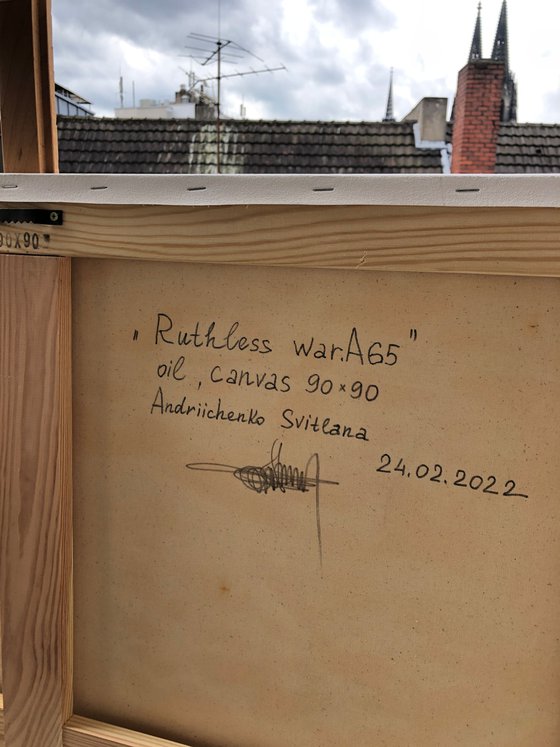 90X90
„Ruthless war.A65"
oil, canvas 90×90
Andriichenko Svitlana
24.02.2022